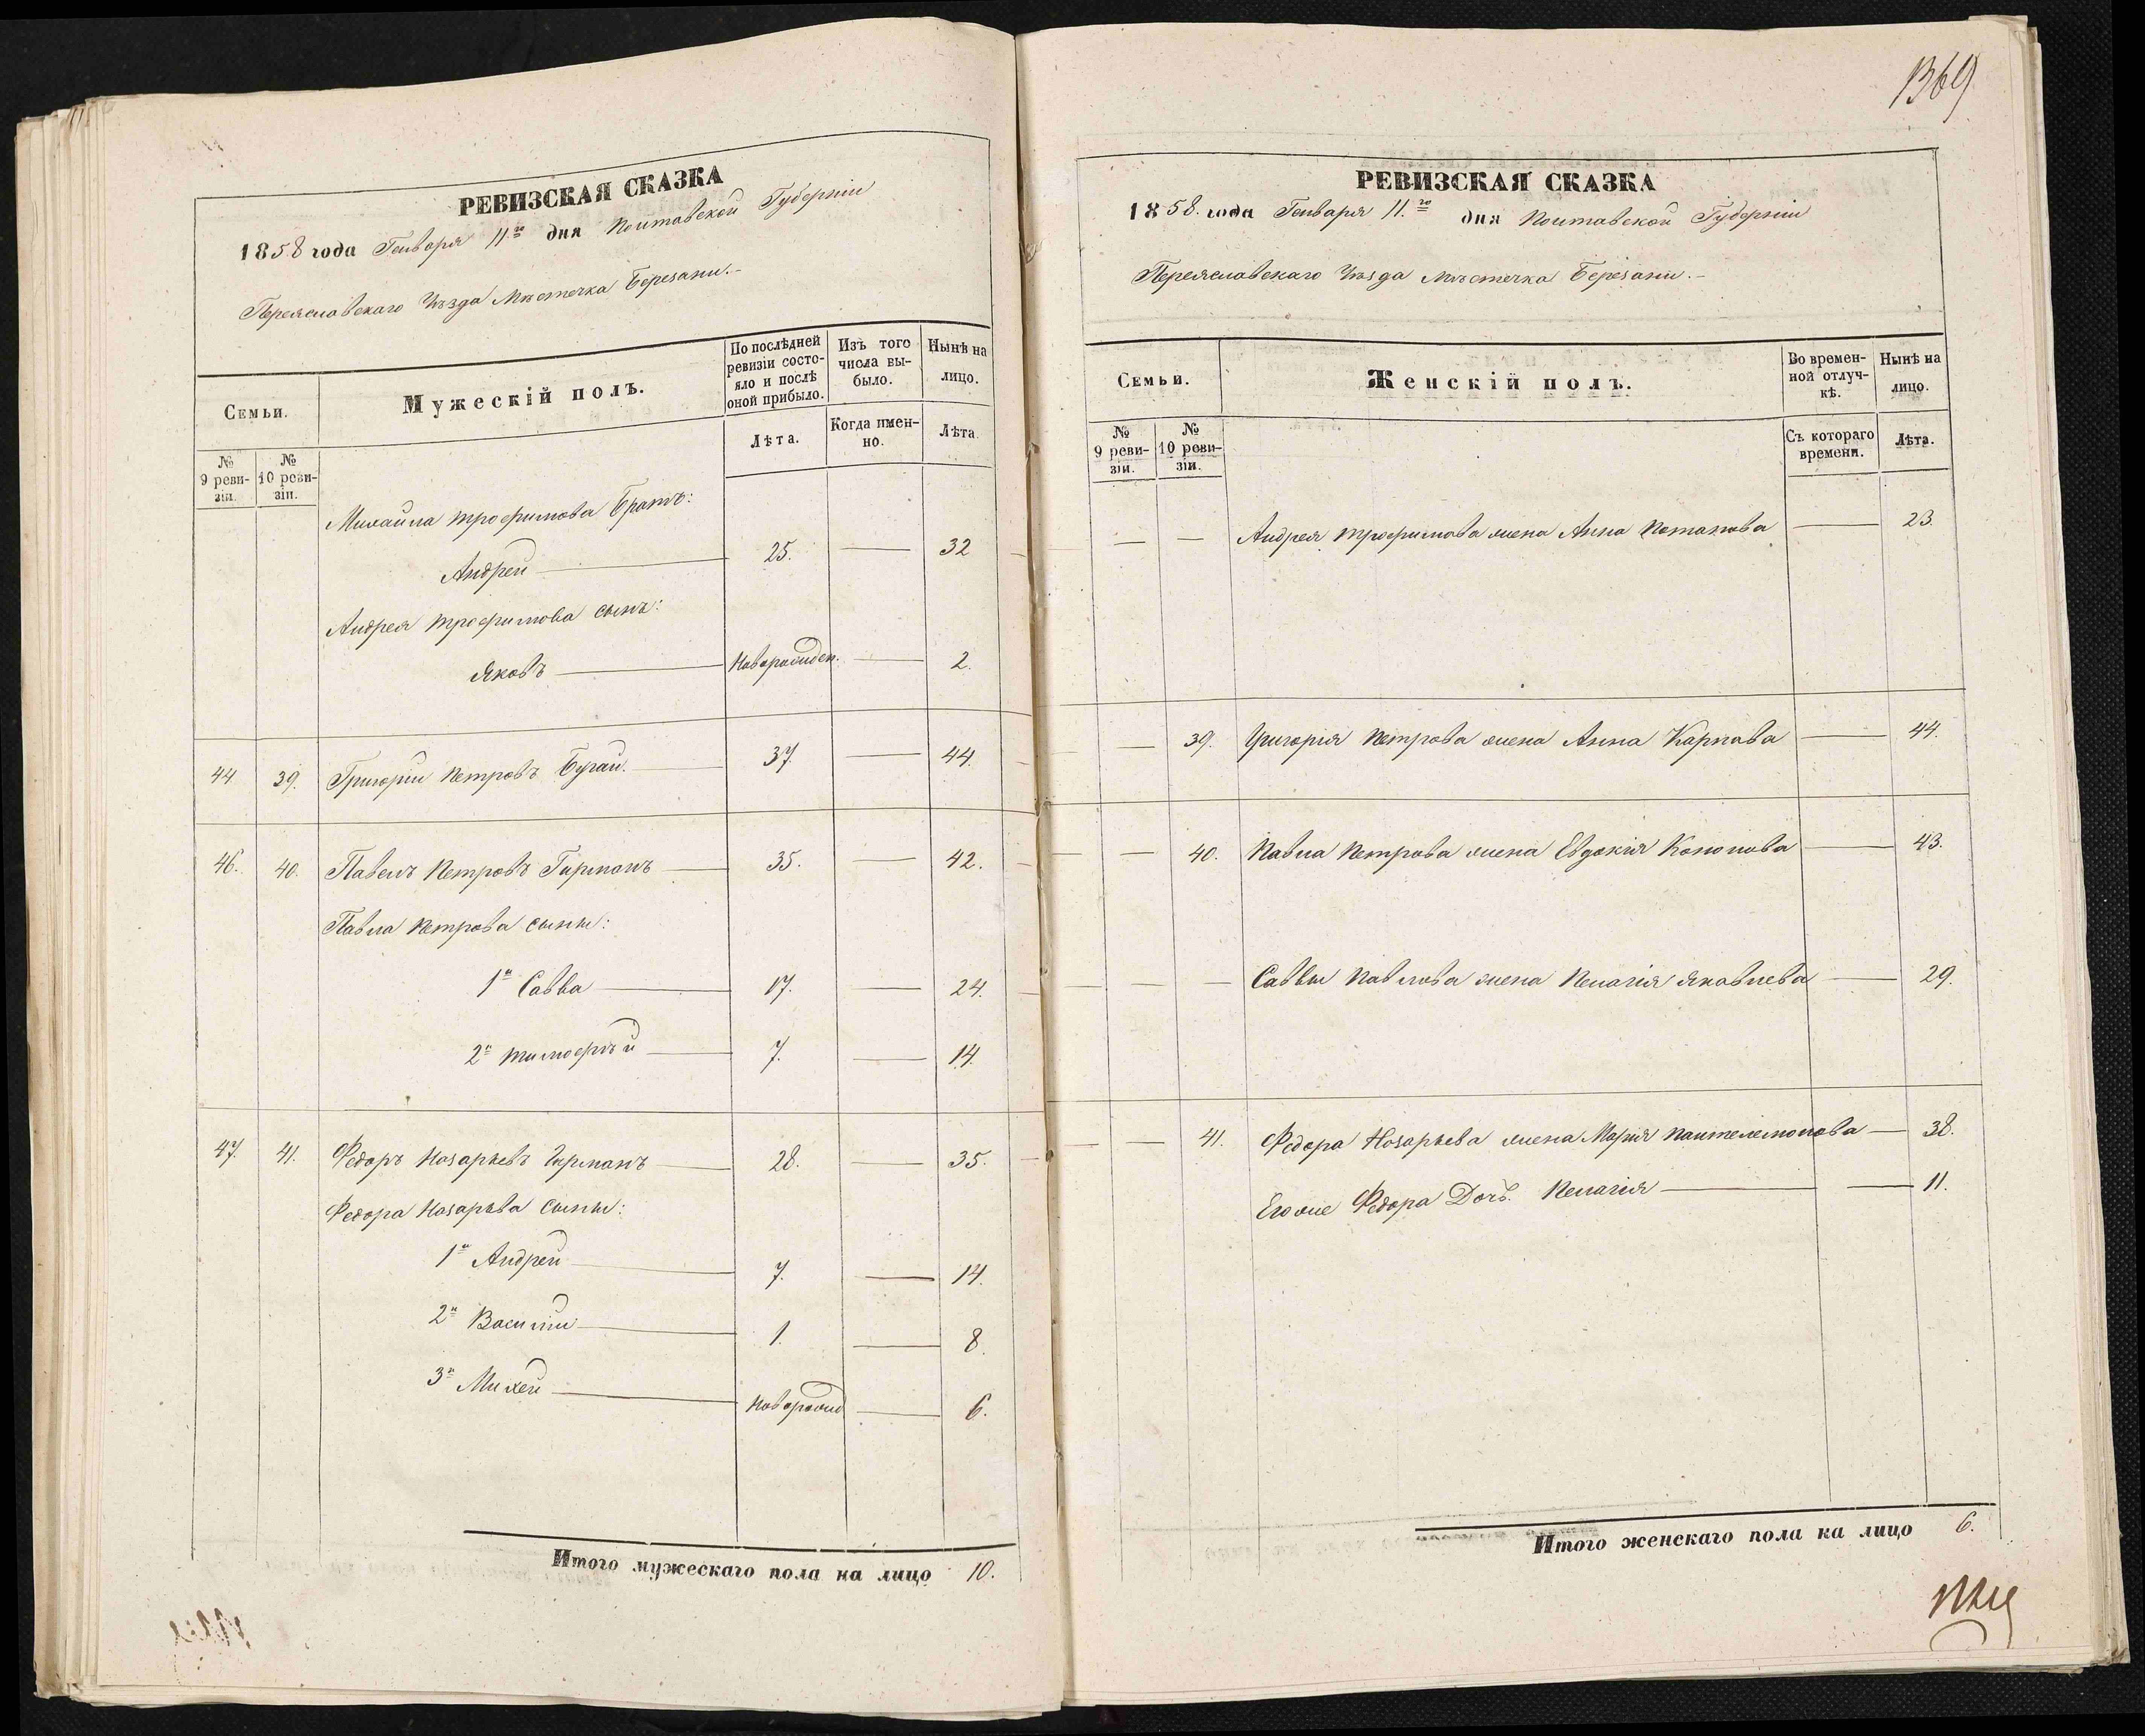 РЕВИЗСКАЯ СКАЗКА
1858 года Генваря 11го дня Полтавской Губерніи
Переяславскаго Уѣзда Мѣстечка Березани.
Семьи.
Мужескій полъ.
По послѣдней ревизіи состояло и послѣ оной прибыло.
Изъ того числа выбыло.
Нынѣ на лицо.
№ 9 ревизіи.
№ 10 ревизіи.
Лѣта.
Когда именно.
Лѣта.
Михайла Трофимова Братъ:
Андрей 25. — 32
Андрея Трофимова сынъ:
Яковъ Новорожден. — 2.
44 39. Григорій Петровъ Бугай. 37. — 44.
46. 40. Павелъ Петровъ Гирманъ 35. — 42.
Павла Петрова сыны:
1й Савва 17. — 24.
2й Тимофѣй 7. — 14.
47. 41. Федоръ Назарьевъ Гирманъ 28. — 35.
Федора Назарьева сыны:
1й Андрей 7. — 14.
2й Василій 1. — 8.
3й Михей Новорожд — 6.
Итого мужескаго пола на лицо 10.
1369
РЕВИЗСКАЯ СКАЗКА
1858. года Генваря 11.го дня Полтавской Губерніи
Переяславскаго Уѣзда Мѣстечка Березани.
Семьи.
Женскій полъ.
Во временной отлучкѣ.
Нынѣ на лицо.
№ 9 ревизіи.
№ 10 ревизіи.
Съ котораго времени.
Лѣта.
— — Андрея Трофимова жена Анна Потапова — 23.
— 39. Григорія Петрова жена Анна Карпова — 44.
— 40. Павла Петрова жена Евдокія Кононова — 43.
— — Саввы Павлова жена Пелагія Яковлева — 29.
— 41. Федора Назарьева жена Марія Пантелемонова — 38.
Егоже Федора Дочь. Пелагія — 11.
Итого женскаго пола на лицо 6.